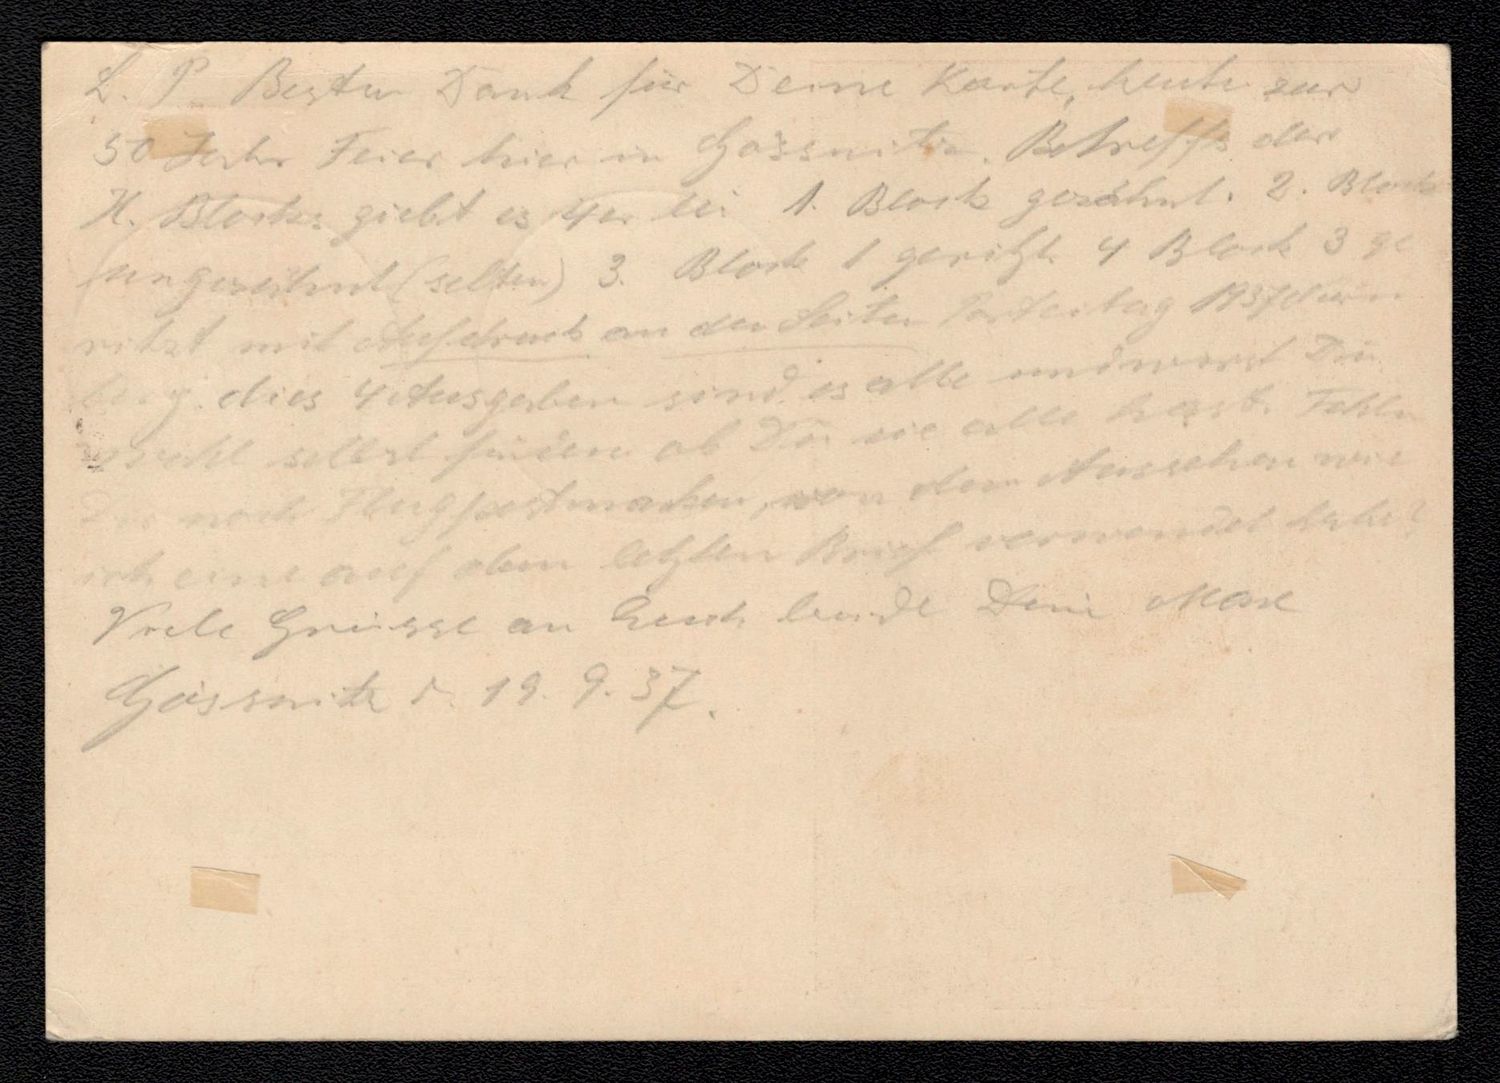 L. P. Besten Dank für Deine Karte, heute zur
50 Jahr Feier hier in Gössnitz. Betreffs der
H. Blocks giebt es 4er lei 1. Block gezähnt. 2. Block
ungezähnt (selten) 3. Block 1 geritzt 4 Block 3 ge
ritzt mit Aufdruck an den Seiten Parteitag 1937
berg. dies 4 Ausgaben sind es alle und wirst Du
wohl selbst finden ob Du sie alle hast. Fehlen
Dir noch Flugpostmarken, von dem Aussehen wie
ich eine auf dem letzten Brief verwendet habe?
Viele Grüsse an Euch beide Dein Max
Gössnitz d. 19. 9. 37.